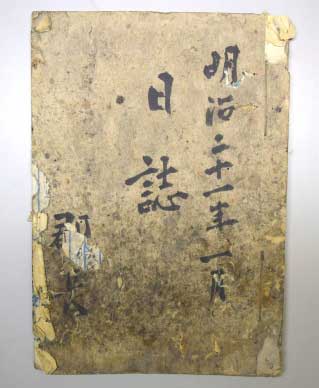 明治二十一年一月
日誌
郡長